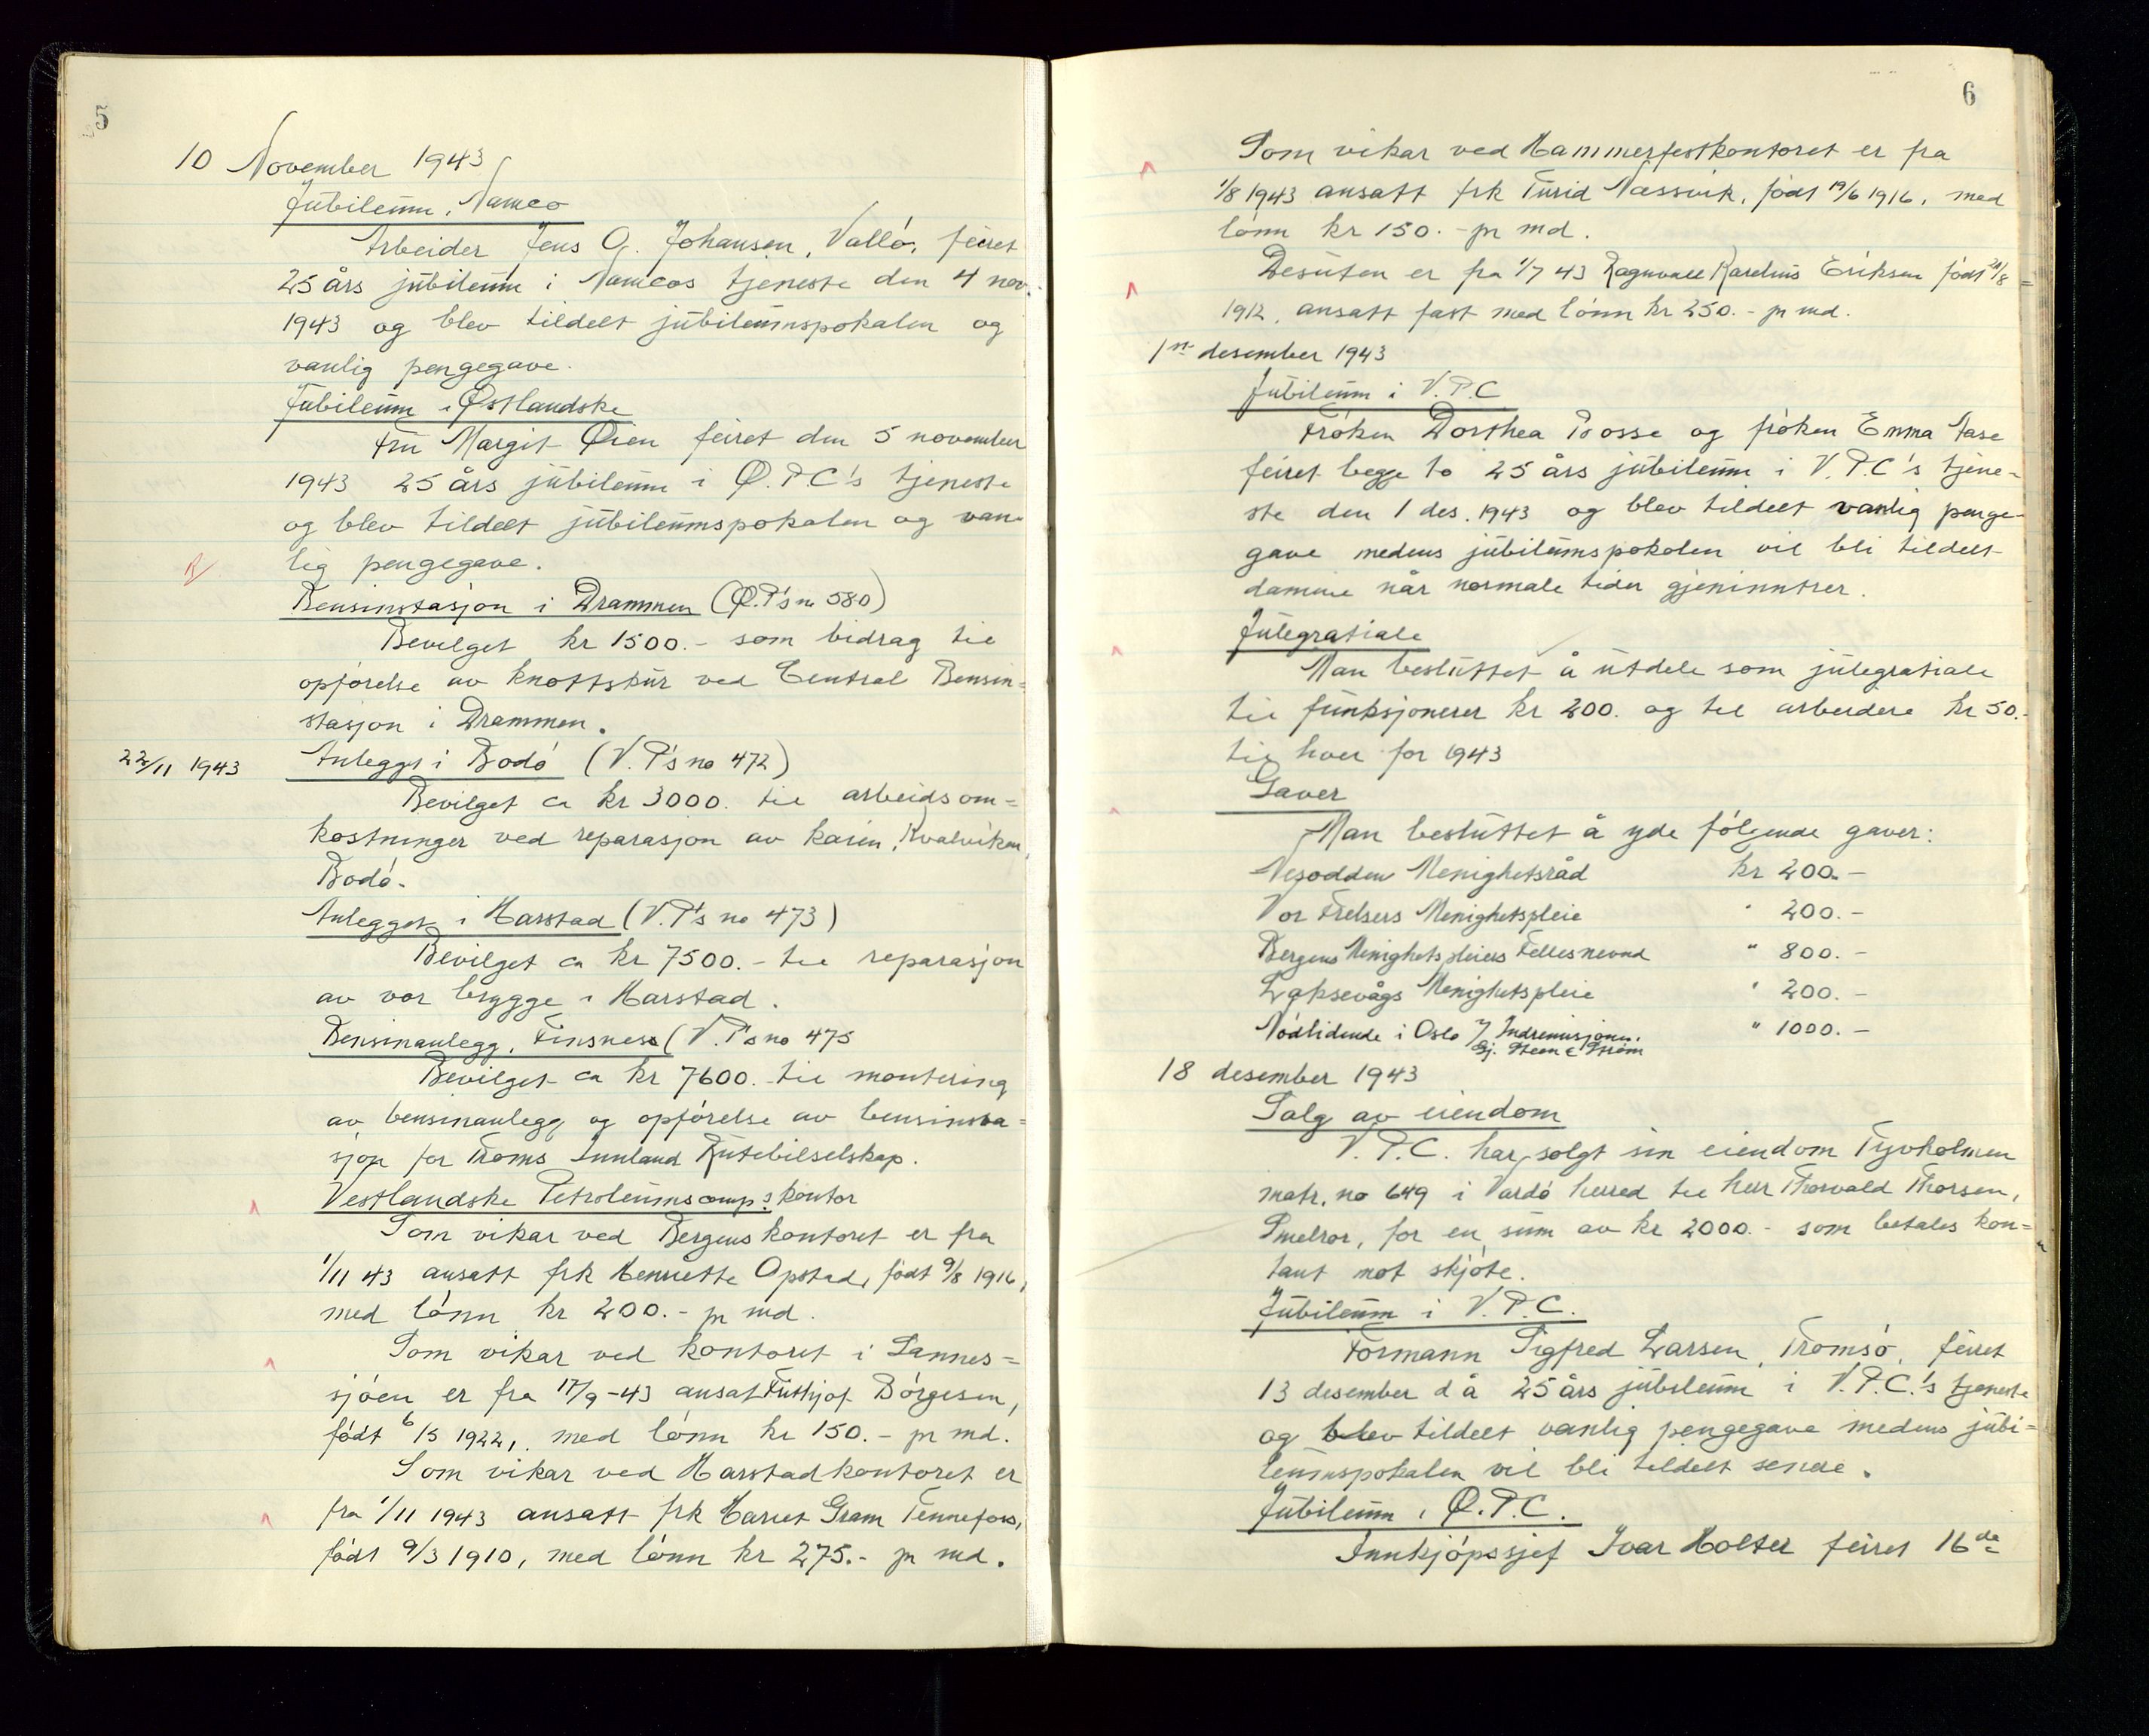 5
10 November 1943
Jubileum, Namco
Arbeider Jens G. Johansen, Vallö, feiret
25 års jubileum i Namcos tjeneste den 4 nov.
1943 og blev tildelt jubileumspokalen og
vanlig pengegave.
Jubileum i Østlandske
Fru Margit Øien feiret den 5 november
1943 25 års jubileum i Ø.P.C's tjeneste
og blev tildelt jubileumspokalen og van-
lig pengegave.
Bensinstasjon i Drammen (Ø.P's no 580)
Bevilget kr 1500.- som bidrag til
opförelse av knottskur ved Central Bensin=
stasjon i Drammen.
22/11 1943 Anlegget i Bodö (V.P's no 472)
Bevilget ca kr 3000. til arbeidsom=
kostninger ved reparasjon av kaien, Kvalviken,
Bodö.
Anlegget i Harstad (V.P's no 473)
Bevilget ca kr 7500.- til reparasjon
av vor brygge i Harstad.
Bensinanlegg, Finsness (V.P's no 475
Bevilget ca kr 7600.- til montering
av bensinanlegg og opförelse av bensinsta=
sjon for Troms Innland Rutebilselskap.
Vestlandske Petroleumscomp's kontor
Som vikar ved Bergenskontoret er fra
1/11 43 ansatt frk Henriette Opstad, födt 9/8 1916,
med lönn kr 200.- pr md.
Som vikar ved kontoret i Sannes=
sjöen er fra 17/9-43 ansat Frithjof Börgesen,
födt 6/5 1922, med lönn kr 150.- pr md.
Som vikar ved Harstadkontoret er
fra 1/11 1943 ansatt frk Harriet Gram Tennefoss,
födt 9/3 1910, med lönn kr 275.- pr md.
6
Som vikar ved Hammerfestkontoret er fra
1/8 1943 ansatt frk Turid Næssvik, födt 19/6 1916, med
lönn kr 150.- pr md.
Desuten er fra 1/7 43 Ragnvall Karelius Eriksen födt 21/8=
1912, ansatt fast med lönn kr 250.- pr md.
1ste desember 1943
Jubileum i V.P.C
Fröken Dorthea Bosse og fröken Emma Aase
feiret begge to 25 års jubileum i V.P.C's tjene-
ste den 1 des. 1943 og blev tildelt vanlig penge-
gave medens jubileumspokalen vil bli tildelt
damene når normale tider gjeninntrer.
Julegratiale
Man besluttet å utdele som julegratiale
til funksjonerer kr 200. og til arbeidere kr 50.-
til hver for 1943
Gaver
Man besluttet å yde fölgende gaver:
Nesodden Menighetsråd kr 200.-
Vor Frelsers Menighetspleie " 200.-
Bergens Menighetspleiers Fellesnevnd " 800.-
Laksevågs Menighetspleie " 200.-
Nödlidende i Oslo v/ Indremisjonen. " 1000.-
Gj. Steen & Ström
18 desember 1943
Salg av eiendom
V.P.C. har solgt sin eiendom Tyvholmen
matr. no 649 i Vardö herred til herr Thorvald Thorsen,
Smelror, for en sum av kr 2000.- som betales kon=
tant mot skjöte.
Jubileum i V.P.C.
Formann Sigfred Larsen, Tromsö, feiret
13 desember d å 25 års jubileum i V.P.C.'s tjeneste
og blev tildelt vanlig pengegave medens jubi=
leumspokalen vil bli tildelt senere.
Jubileum i Ø.P.C.
Innkjöpssjef Ivar Holter feiret 16de